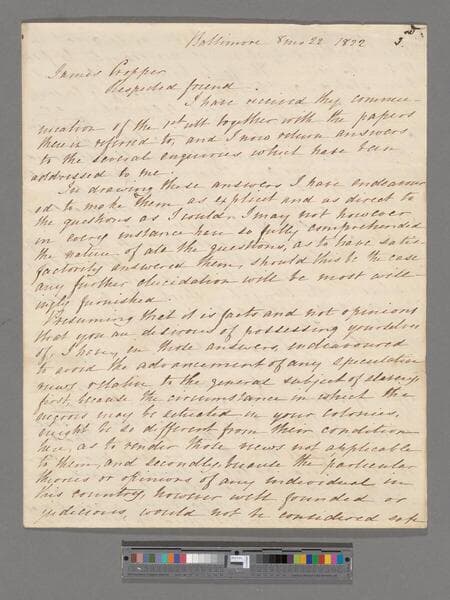 Baltimore 8 mo 22 1822
James Cropper
Respected friend.
I have received thy commu-
nication of the 1st ult together with the papers
therein referred to, and I now return answers
to the several enquiries which have been
addressed to me.
In drawing these answers I have endeavour
ed to make them as explicit and as direct to
the questions as I could. I may not however
in every instance have so fully comprehended
the nature of all the questions, as to have satis
factorily answered them, should this be the case
any further elucidation will be most will
ingly furnished.
Presuming that it is facts and not opinions
that you are desirous of possessing yourselves
of, I have, in those answers, endeavoured
to avoid the advancement of any speculative
views relative to the general subject of slavery,
first, because the circumstance in which the
negroes may be situated in your colonies,
might be so different from their condition
here, as to render those views not applicable
to them, and secondly, because the particular
theories or opinions of any individual in
this country, however well founded or
judicious, would not be considered